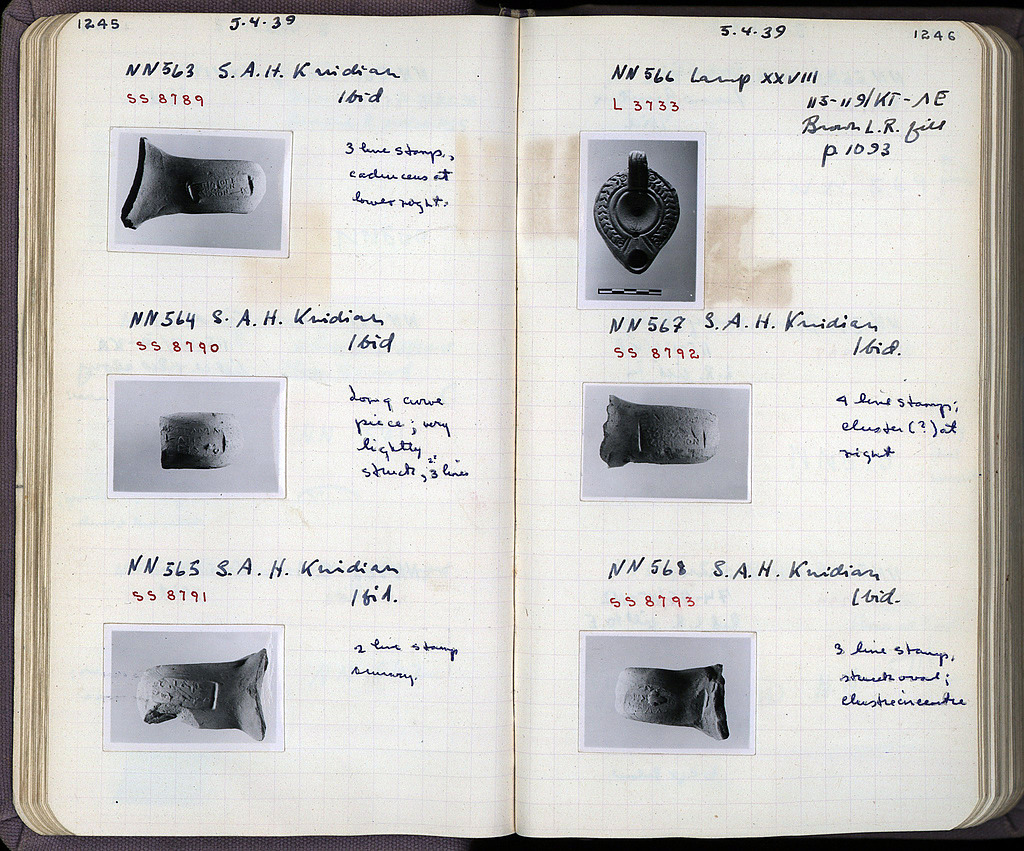 1245
5.4.39
NN563 S.A.H. Knidian
SS 8789
Ibid
3 line stamp,
caduceus at
lower right.
NN564 S.A.H. Knidian
SS 8790
Ibid
Long curve
piece; very
lightly
struck, 3 lines
NN565 S.A.H. Knidian
SS 8791
Ibid.
2 line stamp
5.4.39
1246
NN566 Lamp XXVIII
L 3733
113-119/KT-ΛE
Brown L.R. fill
p 1093
NN567 S.A.H. Knidian
SS 8792
Ibid.
4 line stamp;
cluster (?) at
right
NN568 S.A.H. Knidian
SS 8793
Ibid.
3 line stamp,
struck oval;
cluster in centre